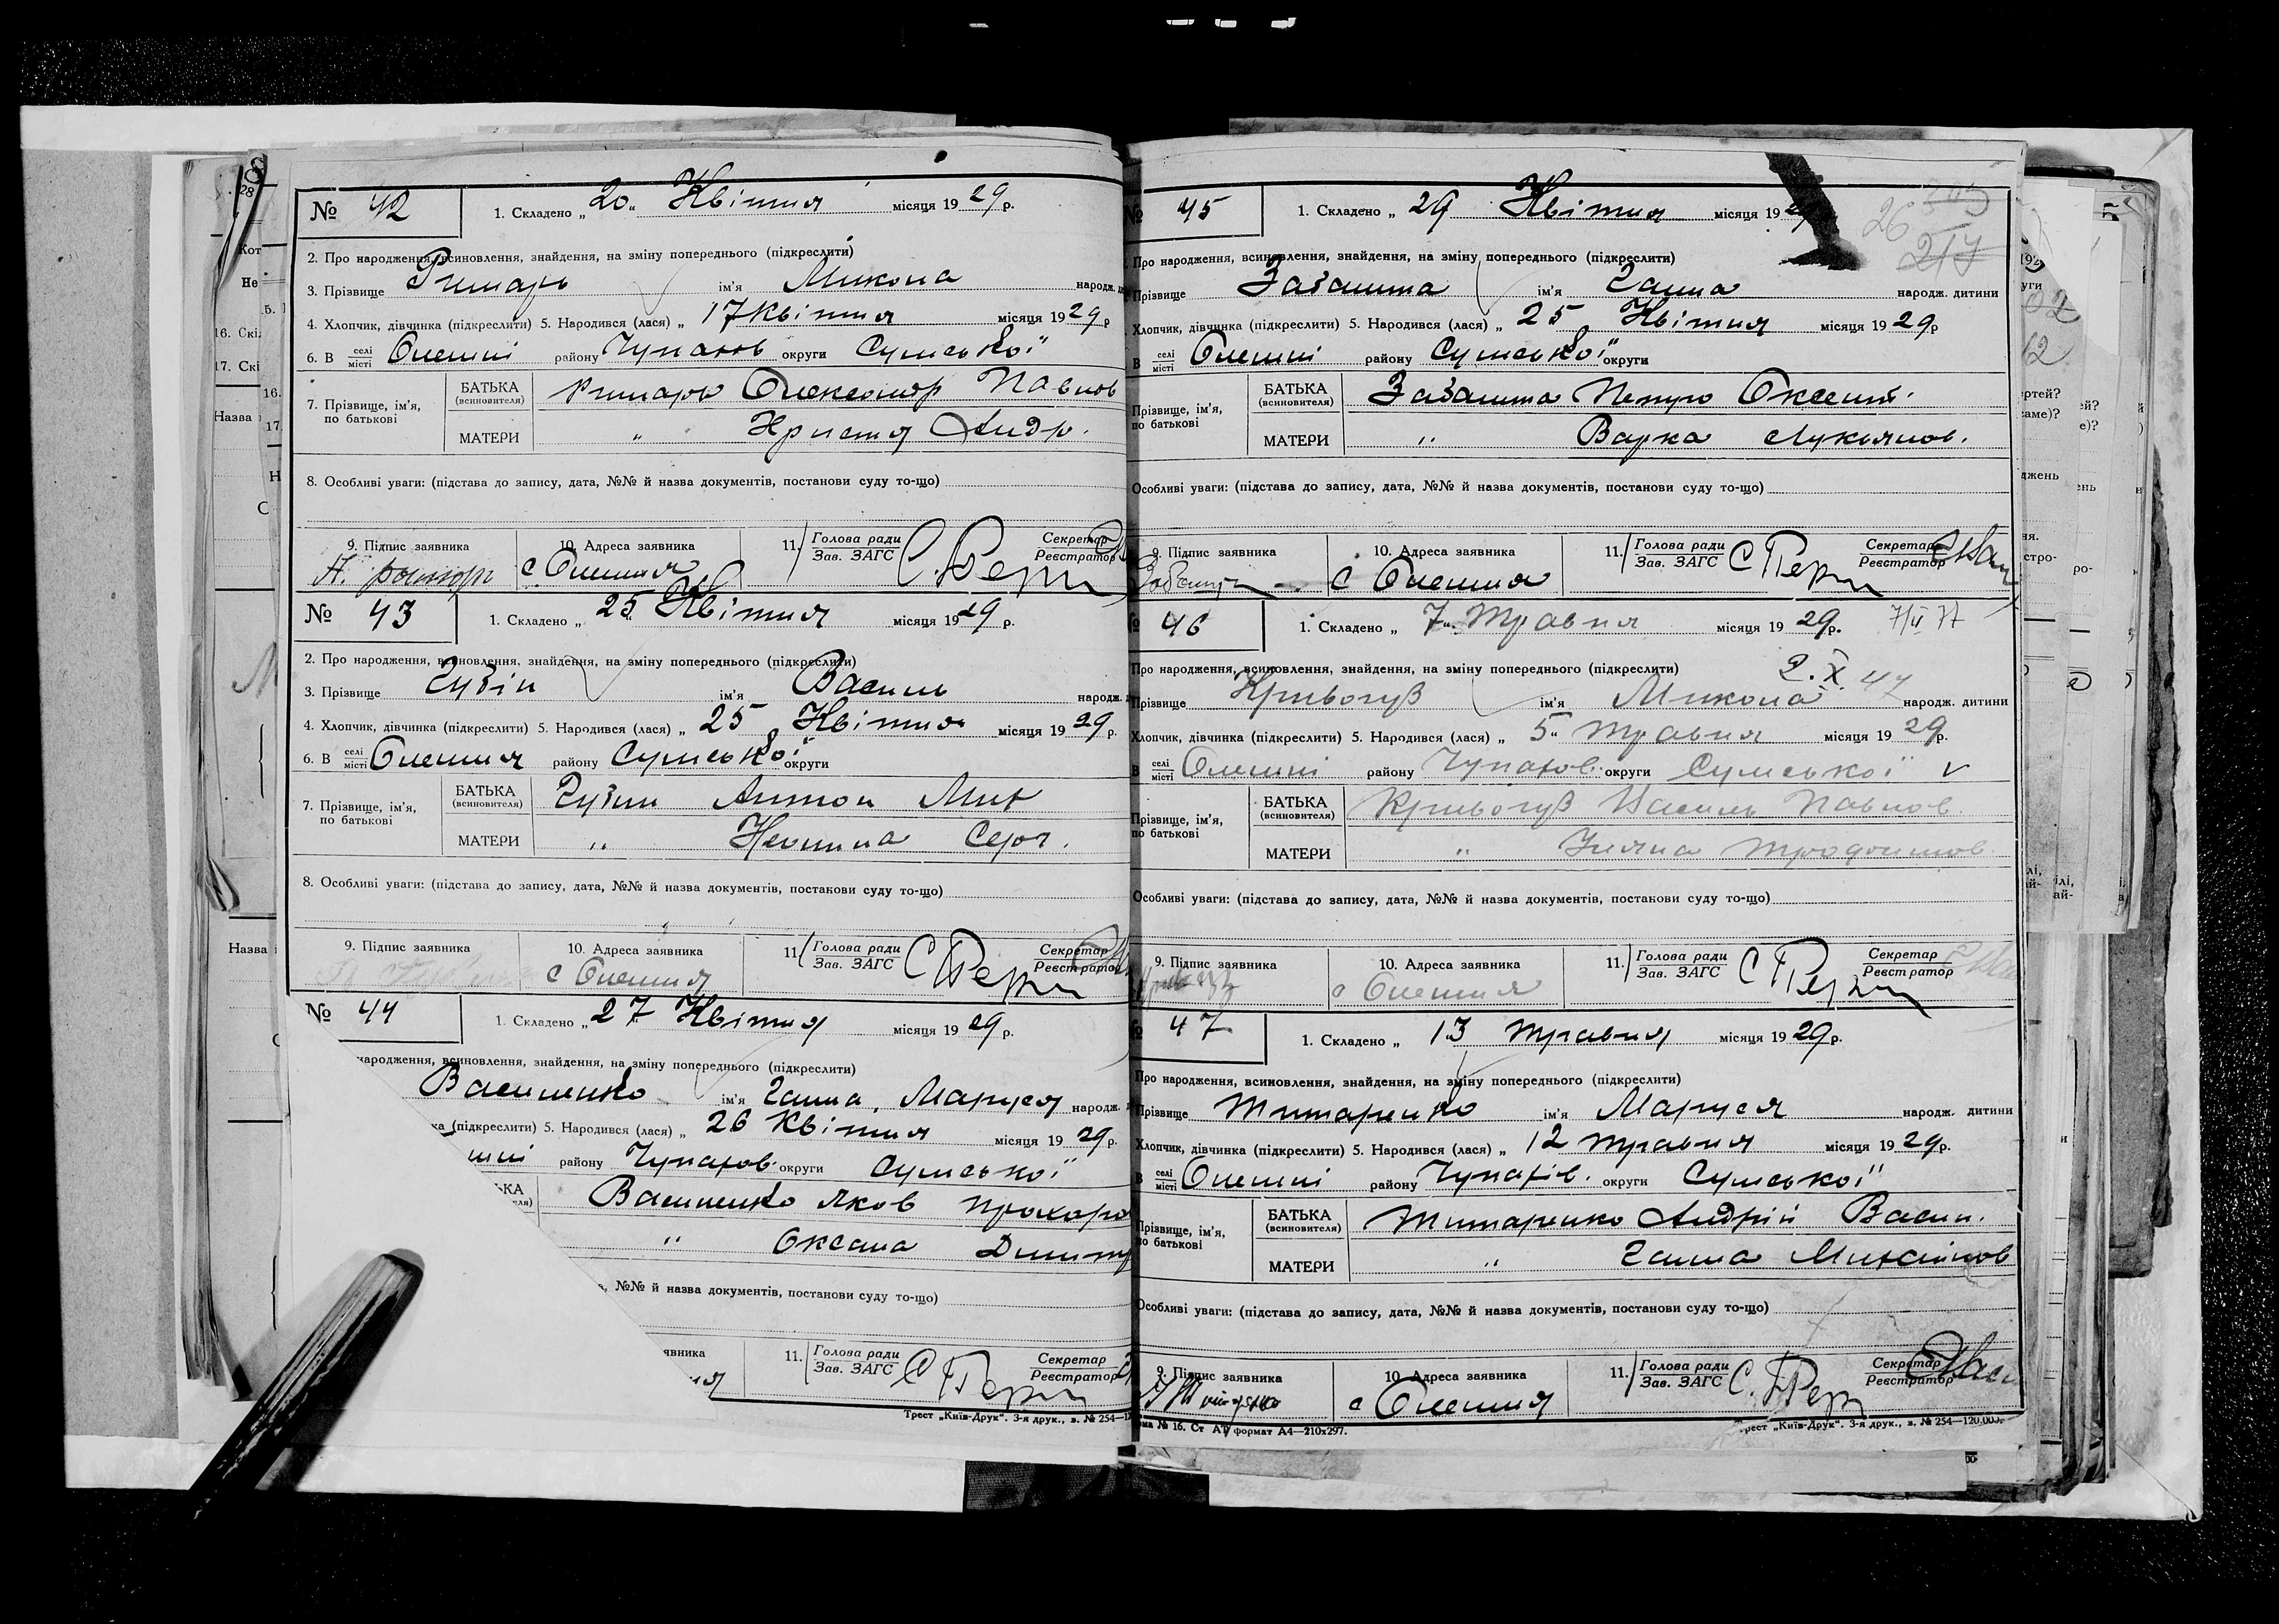 № 42 1. Складено „ 20 „ Квітня місяця 1929 р.
2. Про народження, всиновлення, знайдення, на зміну попереднього (підкреслити)
3. Прізвище Римарь ім'я Микола народж.
4. Хлопчик, дівчинка (підкреслити) 5. Народився (лася) „ 17 Квітня місяця 1929 р
6. В селі місті Олешні району Чупахов округи Сумської
7. Прізвище, ім'я, по батькові
БАТЬКА (всиновителя) Римарь Олександр Павлов
МАТЕРИ „ Христя Андр.
8. Особливі уваги: (підстава до запису, дата, №№ й назва документів, постанови суду то-що)
9. Підпис заявника 10. Адреса заявника с Олешня 11. Голова ради Зав. ЗАГС Секретар Реєстратор
№ 43 1. Складено „ 25 „ Квітня місяця 1929 р.
2. Про народження, всиновлення, знайдення, на зміну попереднього (підкреслити)
3. Прізвище Губін ім'я Василь народж.
4. Хлопчик, дівчинка (підкреслити) 5. Народився (лася) „ 25 Квітня місяця 1929 р.
6. В селі місті Олешня району Сумської округи
7. Прізвище, ім'я, по батькові
БАТЬКА (всиновителя) Губин Антон Мих
МАТЕРИ „ Серг.
8. Особливі уваги: (підстава до запису, дата, №№ й назва документів, постанови суду то-що)
9. Підпис заявника 10. Адреса заявника с Олешня 11. Голова ради Зав. ЗАГС Секретар Реєстратор
№ 44 1. Складено „ 27 Квітня місяця 1929 р.
народження, всиновлення, знайдення, на зміну попереднього (підкреслити)
Василенко ім'я Ганна, Маруся народж.
ка (підкреслити) 5. Народився (лася) „ 26 Квітня місяця 1929 р.
шні району Чупахов. округи Сумської
Василенко Яков Прохоро
„ Оксана Дмитр
№№ й назва документів, постанови суду то-що)
явника 11. Голова ради Зав. ЗАГС Секретар Реєстратор
Трест „Київ-Друк“. 3-я друк., з. № 254—12
№ 45 1. Складено „ 29 Квітня місяця 1929
Про народження, всиновлення, знайдення, на зміну попереднього (підкреслити)
Прізвище Забашта ім'я Ганна народж. дитини
Хлопчик, дівчинка (підкреслити) 5. Народився (лася) „ 25 Квітня місяця 1929 р
В селі місті Олешні району Сумської округи
Прізвище, ім'я, по батькові
БАТЬКА (всиновителя) Забашта Петро Оксент.
МАТЕРИ „ Варка Лукьянов.
Особливі уваги: (підстава до запису, дата, №№ й назва документів, постанови суду то-що)
9. Підпис заявника 10. Адреса заявника с Олешня 11. Голова ради Зав. ЗАГС Секретар Реєстратор
№ 46 1. Складено „ 7 „ Травня місяця 1929 р.
Про народження, всиновлення, знайдення, на зміну попереднього (підкреслити) 2.X.47
Прізвище Кривогуз ім'я Микола народж. дитини
Хлопчик, дівчинка (підкреслити) 5. Народився (лася) „ 5 „ Травня місяця 1929 р.
В селі місті Олешні району Чупахов. округи Сумської
Прізвище, ім'я, по батькові
БАТЬКА (всиновителя) Кривогуз Василь Павлов.
МАТЕРИ „ Уляна Трофимов.
Особливі уваги: (підстава до запису, дата, №№ й назва документів, постанови суду то-що)
9. Підпис заявника 10. Адреса заявника с Олешня 11. Голова ради Зав. ЗАГС Секретар Реєстратор
№ 47 1. Складено „ 13 Травня місяця 1929 р.
Про народження, всиновлення, знайдення, на зміну попереднього (підкреслити)
Прізвище Титаренко ім'я Маруся народж. дитини
Хлопчик, дівчинка (підкреслити) 5. Народився (лася) „ 12 Травня місяця 1929 р.
В селі місті Олешні району Чупахів. округи Сумської
Прізвище, ім'я, по батькові
БАТЬКА (всиновителя) Титаренко Андрій Васил.
МАТЕРИ „ Ганна Михайлов
Особливі уваги: (підстава до запису, дата, №№ й назва документів, постанови суду то-що)
9. Підпис заявника 10. Адреса заявника с Олешня 11. Голова ради Зав. ЗАГС Секретар Реєстратор
ма № 16. Ст АТ формат А4—210х297. Трест „Київ-Друк“. 3-я друк., з. № 254—120.000.